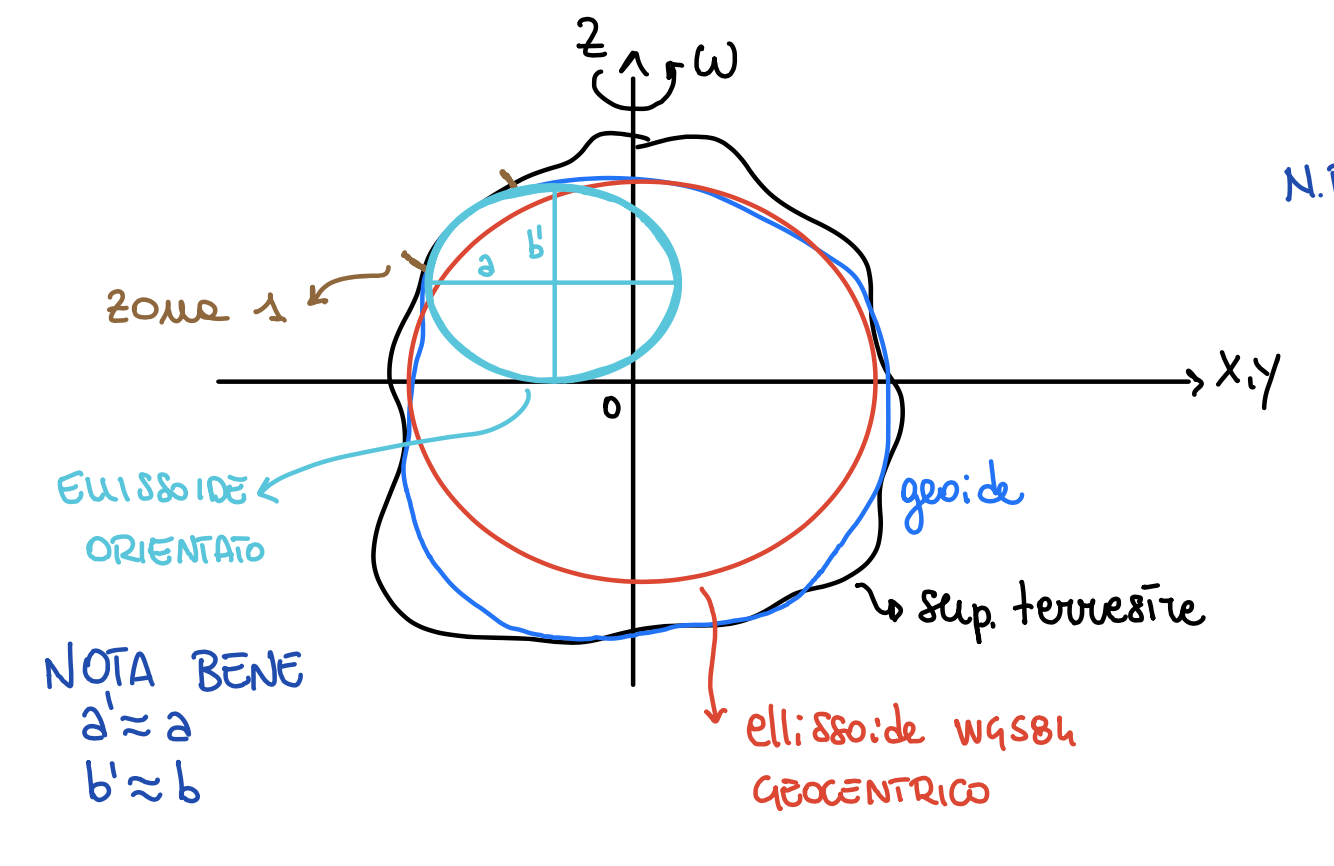 Z ω
N.
b'
a
zona 1
X,Y
O
ELLISSOIDE
ORIENTATO
geoide
sup. terrestre
NOTA BENE
a' ≈ a
b' ≈ b
ellissoide WGS84
GEOCENTRICO